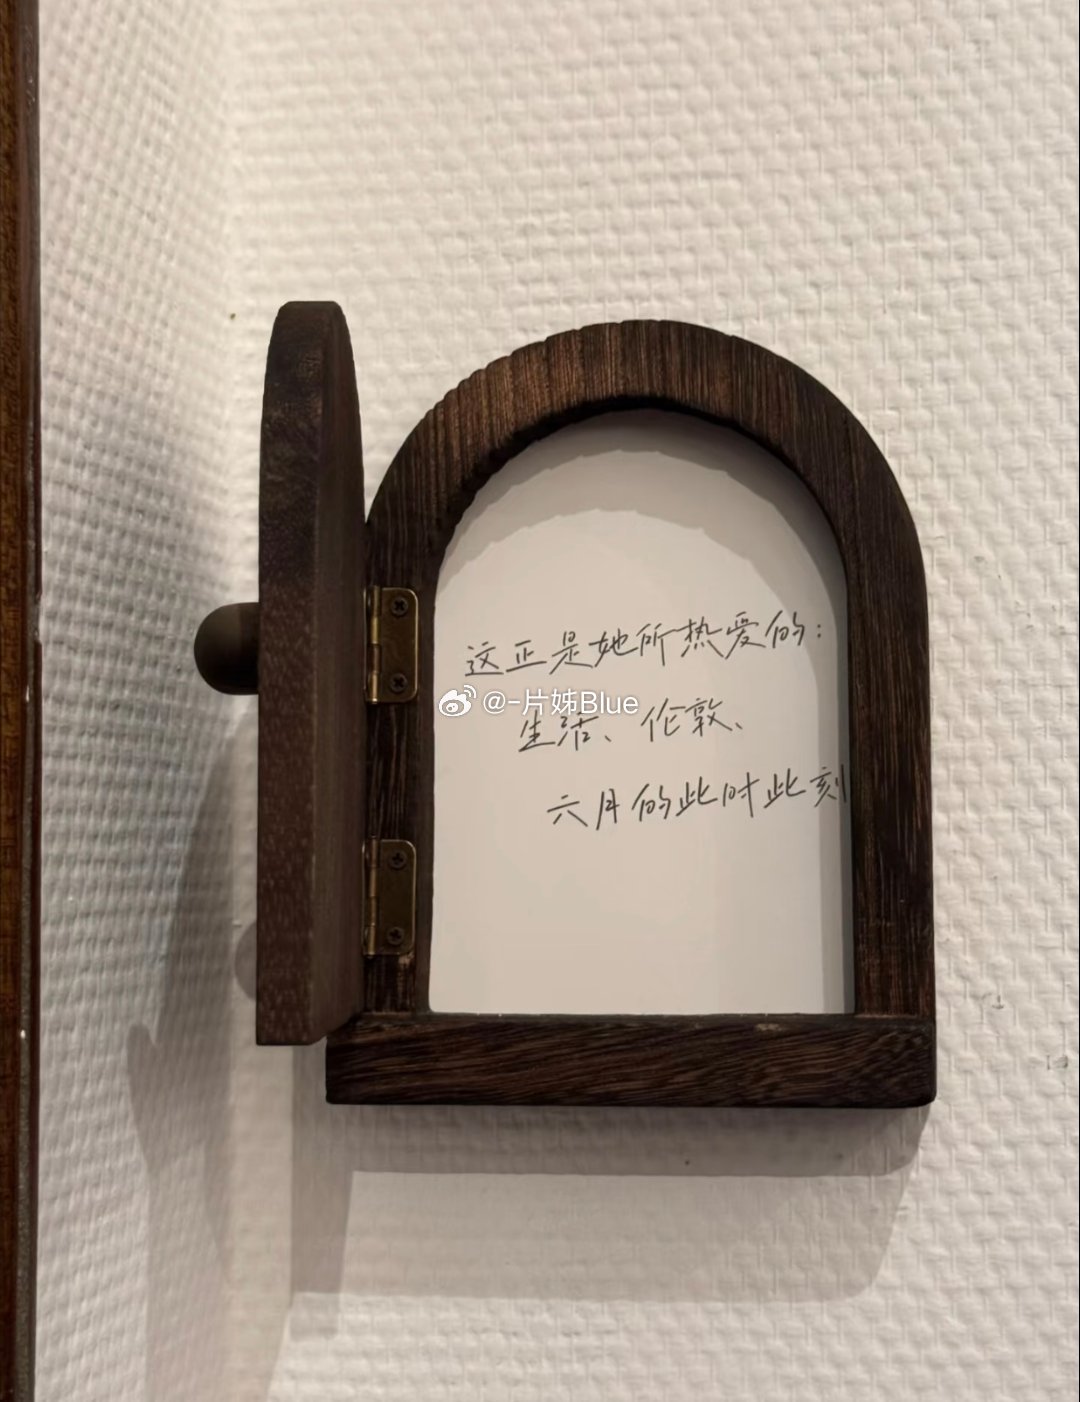 这正是她所热爱的：
@-片姊Blue
生活、伦敦、
六月的此时此刻